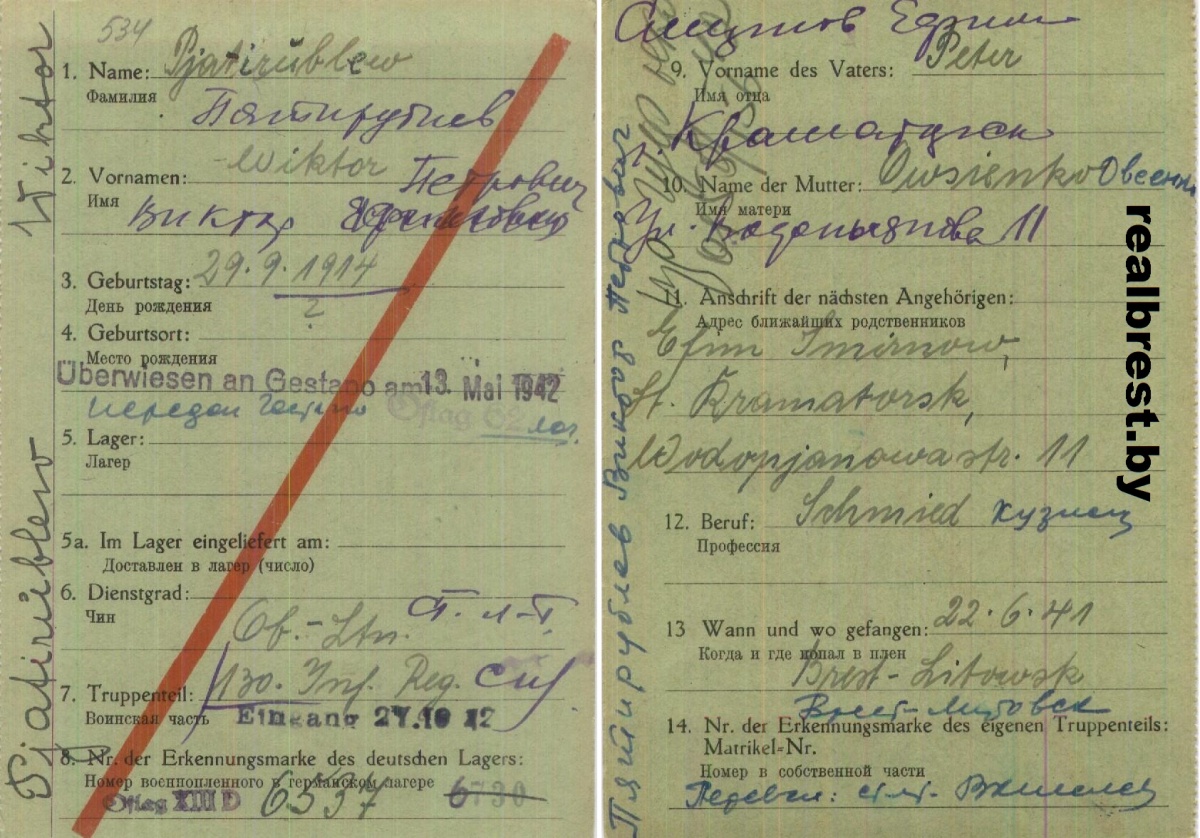 534
1. Name: Pjatirüblew
Фамилия
Пятирублев
2. Vornamen: Wiktor Петрович
Имя
Виктор
3. Geburtstag: 29.9.1914
День рождения ?
4. Geburtsort:
Место рождения
Überwiesen an Gestapo am 13. Mai 1942
передан Гестапо
Oflag 62
5. Lager:
Лагер
5a. Im Lager eingeliefert am:
Доставлен в лагер (число)
6. Dienstgrad:
Чин
Ob.-Ltn. Ст. л-т.
7. Truppenteil: 130. Inf. Reg.
Воинская часть Eingang 27.10 42
8. Nr. der Erkennungsmarke des deutschen Lagers:
Номер военнопленного в германском лагере
Oflag XIII D 6537 6730
Pjatirüblew Wiktor
Смирнов
9. Vorname des Vaters: Peter
Имя отца
г. Краматорск
10. Name der Mutter: Owsienko Овсенко
Имя матери
Ул. Водопьянова 11
11. Anschrift der nächsten Angehörigen:
Адрес ближайших родственников
Efim Smirnow,
St. Kramatorsk,
Wodopjanowa str. 11
12. Beruf: Schmied кузнец
Профессия
13 Wann und wo gefangen: 22.6.41
Когда и где попал в плен
Brest-Litowsk
Брест-Литовск
14. Nr. der Erkennungsmarke des eigenen Truppenteils:
Matrikel-Nr.
Номер в собственной части
Перевел:
Пятирублев Виктор Петрович
realbrest.by